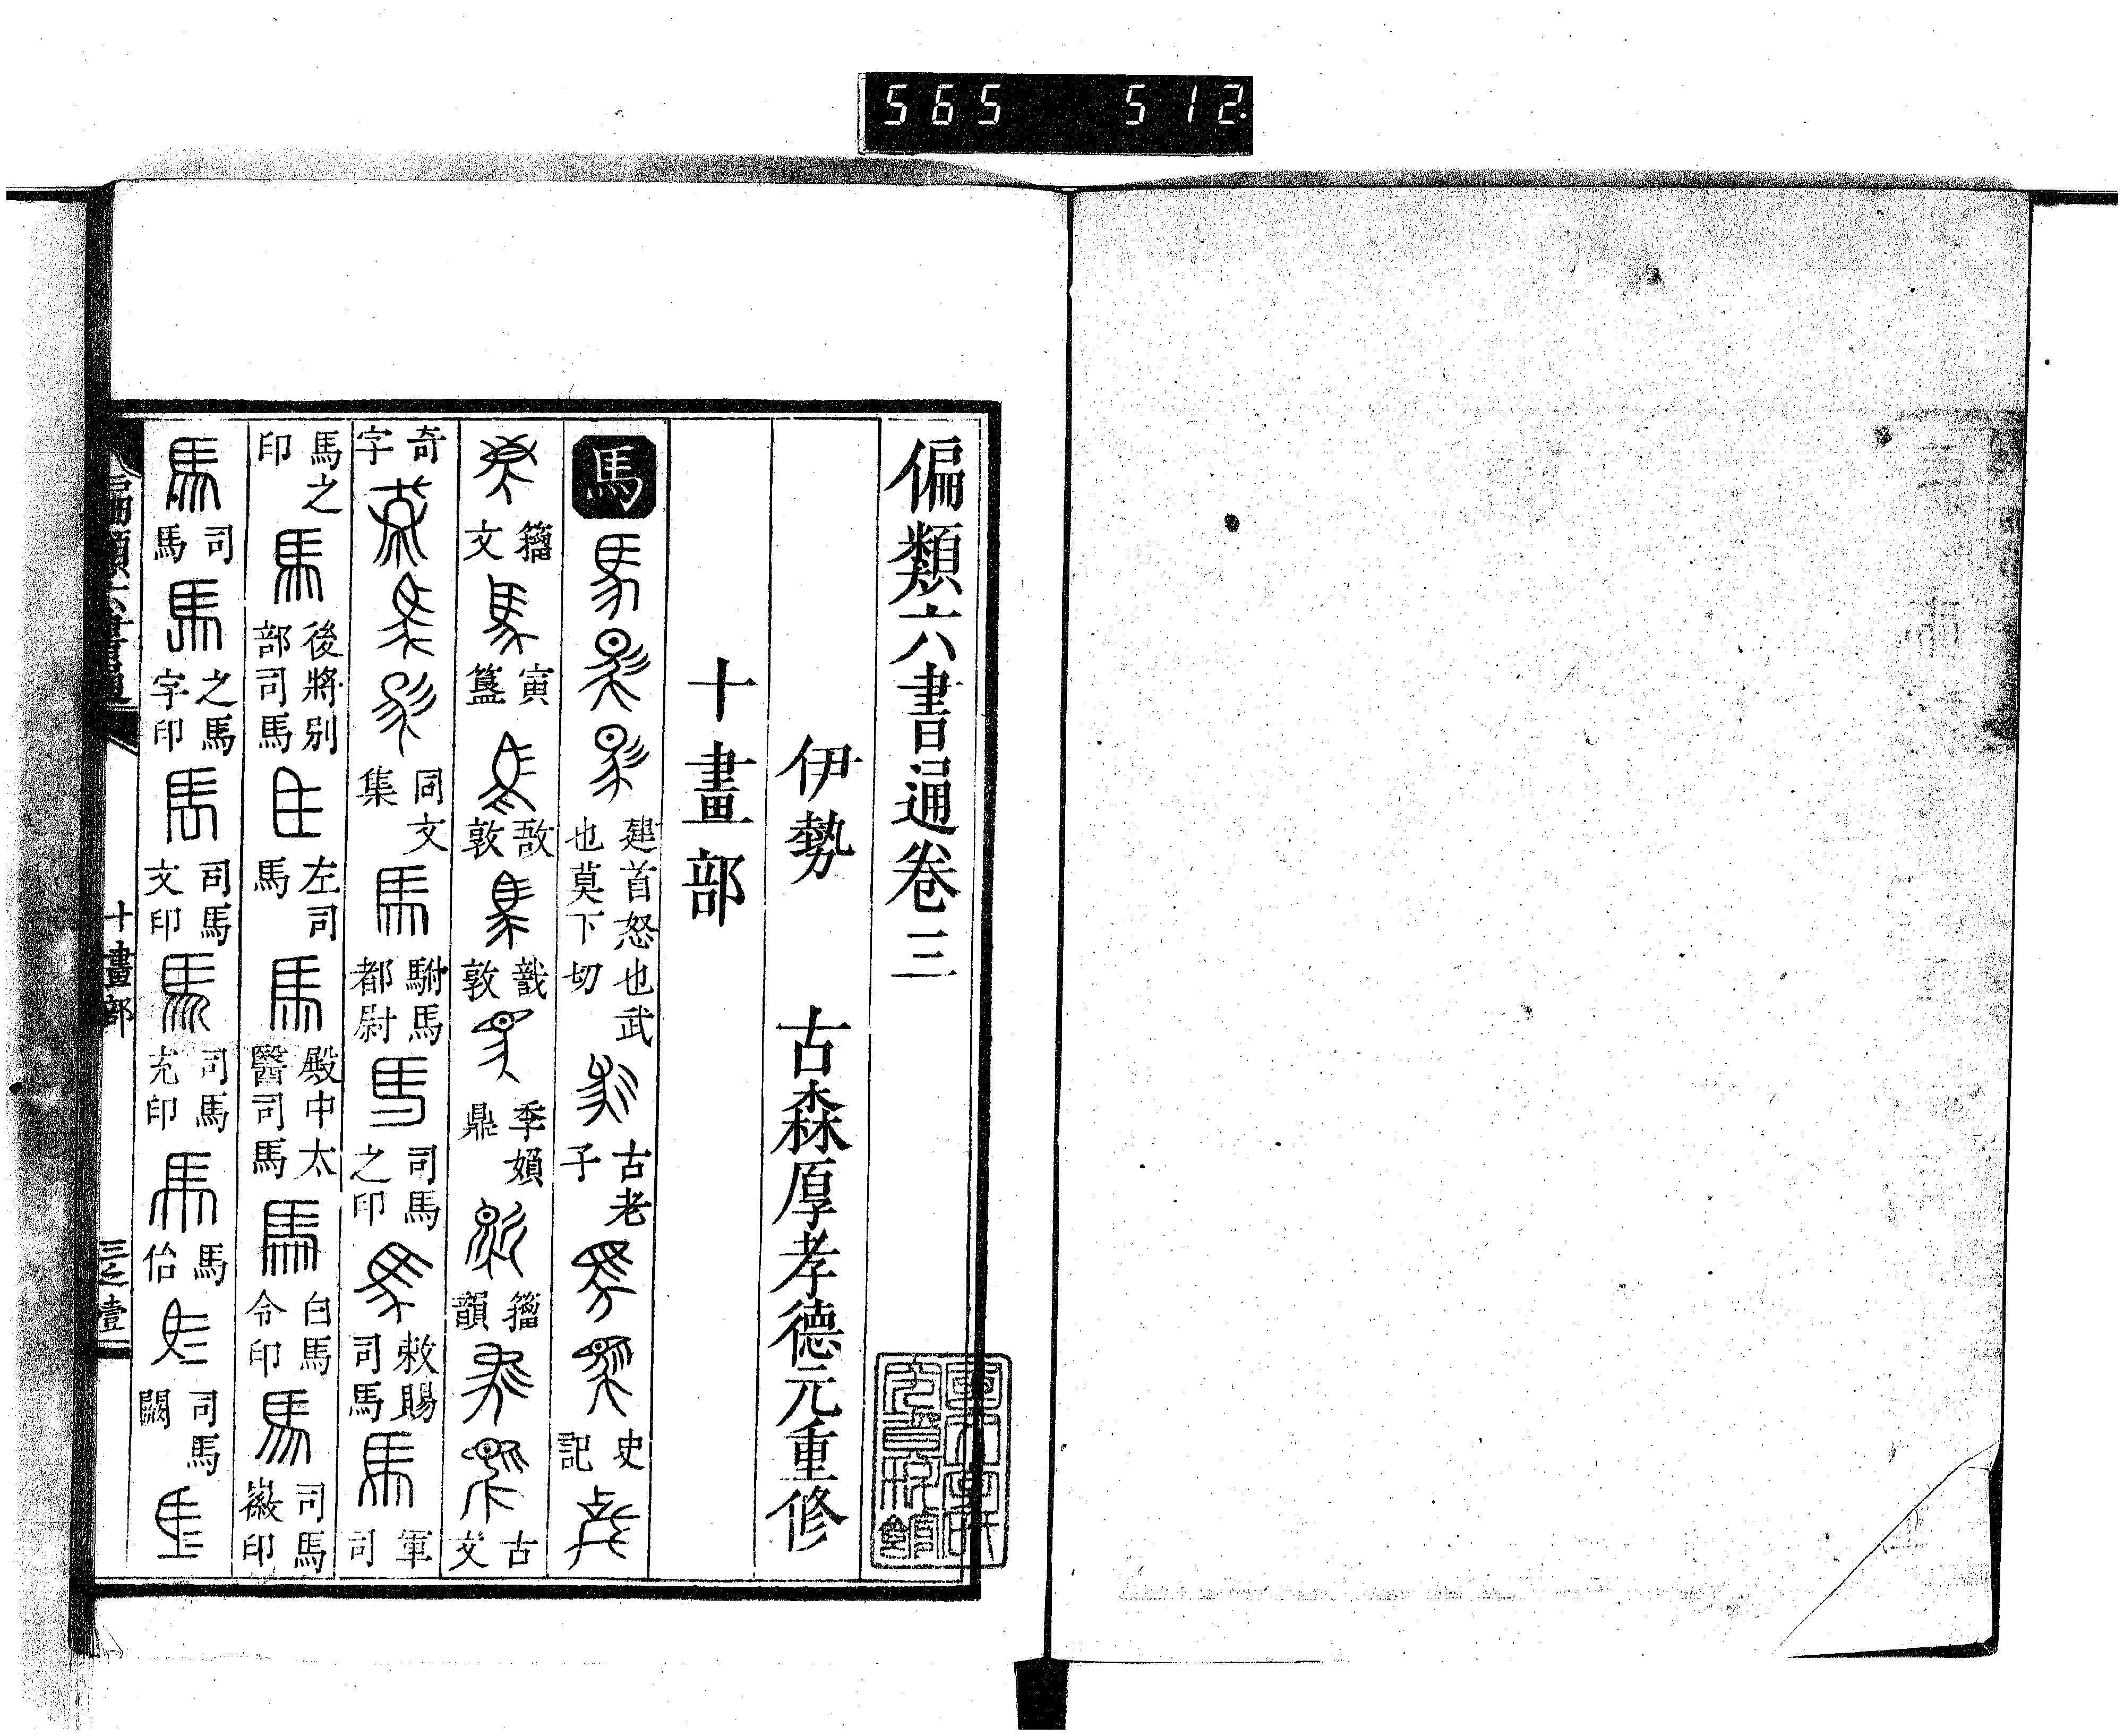 565 512
偏類六書通卷三
伊勢 古森厚孝德元重修
十畫部
馬 建首怒也武也莫下切 古老子 史記
籒文 寅簋 敔敦 敦 季㜏鼎 籒韻 古文
奇字 同文集 駙馬都尉 司馬之印 敕賜司馬 軍司
馬之印 後將別部司馬 左司馬 殿中太醫司馬 白馬令印 司馬徽印
司馬 之馬字印 司馬文印 司馬充印 馬佁 司馬闕
偏類六書通
十畫部
三之壹